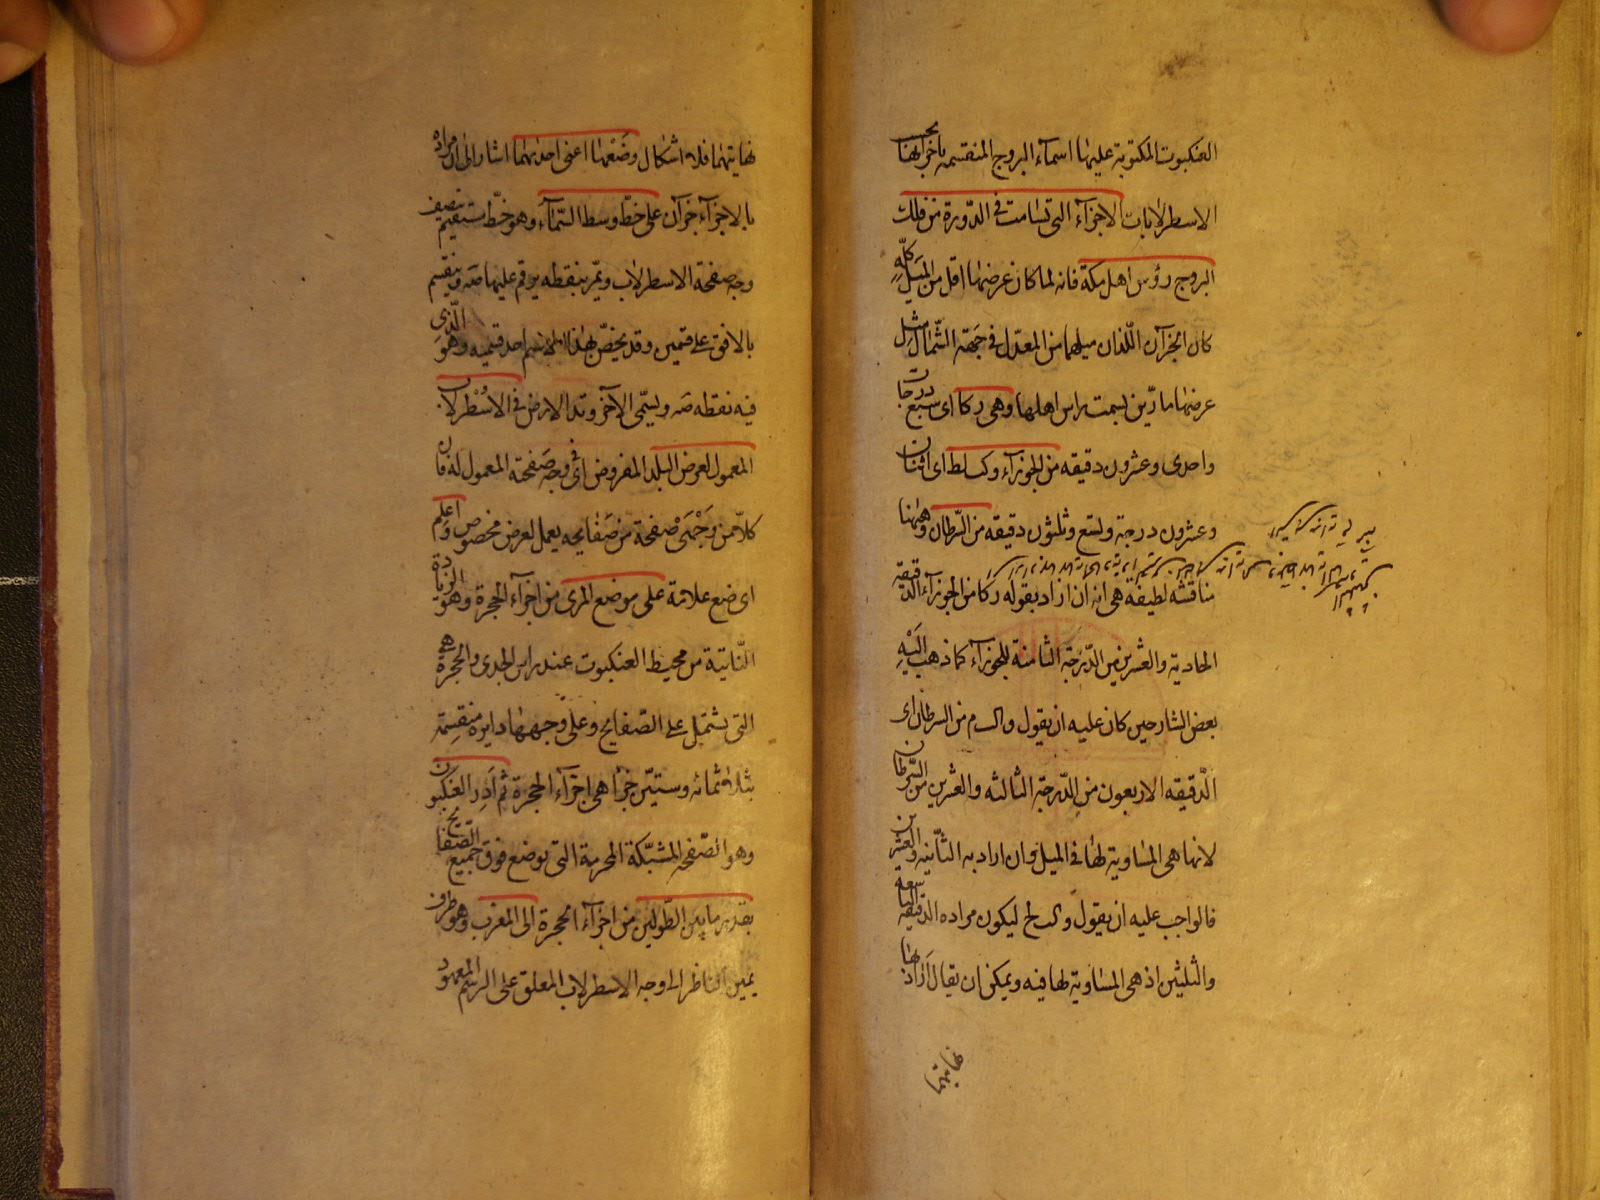 العنكبوت المكتوبة عليها اسماء البروج المنقسمه باجزائها بحسب
الاسطرلابات الاجزآء التى تسامت فى الدّورة من فلك
البروج رؤس اهل مكة فانه لما كان عرضها اقل من الميل كلّه
كان الجزآن اللّذان ميلهما من المعدّل فى جهة الشّمال مثل
عرضها مارّين بسمت راس اهلها وهى ز كا اى سبع درجات
واحدى وعشرون دقيقه من الجوزآء وكب لط اى اثنتان
وعشرون درجة وتسع وثلثون دقيقه من السّرطان وههنا
مناقشه لطيفة هى انه ان اراد بقوله ز كا من الجوزآء الدّقيقة
الحادية والعشرين من الدّرجة الثامنة للجوزآء كما ذهب اليه
بعض الشارحين كان عليه ان يقول و من السرطان اى
الدّقيقه الاربعون من الدّرجة الثالثه والعشرين من السّرطان
لانها هى المساوية لها فى الميل وان اراد به الثّانيه والعشرين
فالواجب عليه ان يقول و ليكون مراده الدّقيقة التاسعه
والثلثين اذ هى المساوية لها فيه ويمكن ان يقال اراد بها
نهايتهما
نهايتهما فلا اشكال وضعها اعنى احدٰيهما اشار الى ان مراده
بالاجزآء جزآن على خطّ وسط السّمآء وهو خطّ مستقيم ينصف
وجه صفحة الاسطرلاب ويمرّ بنقطه يرقم عليها صه وينقسم
بالافق على قسمين وقد يخصّ بهذا الاسم احد قسميه وهو الّذى
فيه نقطه صه ويسمّى الآخر وتد الارض فى الاسطرلاب
المعمول لعرض البلد المفروض اى فى وجه صفحته المعمول له فان
كلّا من وجهى صفحة من صفايحه يعمل لعرض مخصوص واعلم
اى ضع علامة على موضع المرى من اجزآء الحجرة وهو الزيادة
النّاتية من محيط العنكبوت عند راس الجدى والحجرة هى
التى يشتمل على الصّفايح وعلى وجهها دايره منقسمة
بثلاثمائه وستيّن جزأ هى اجزآء الحجرة ثم أدر العنكبوت
وهو الصّفحه المشبّكة المخرمة التى توضع فوق جميع الصّفايح
بقدر ما بين الطّولين من اجزآء الحجرة الى المغرب وهو طرف
يمين الناظر الى وجه الاسطرلاب المعلق على الرسم المعهود